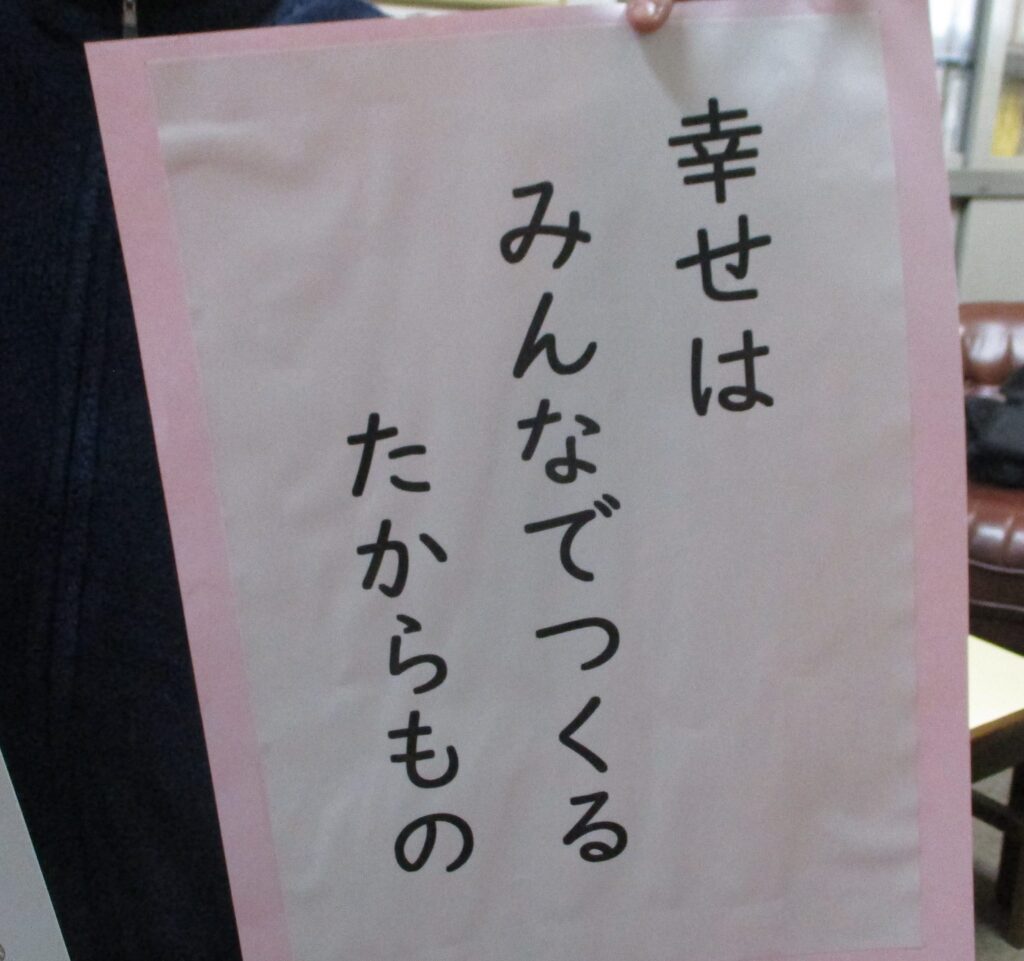 幸せは
みんなでつくる
たからもの